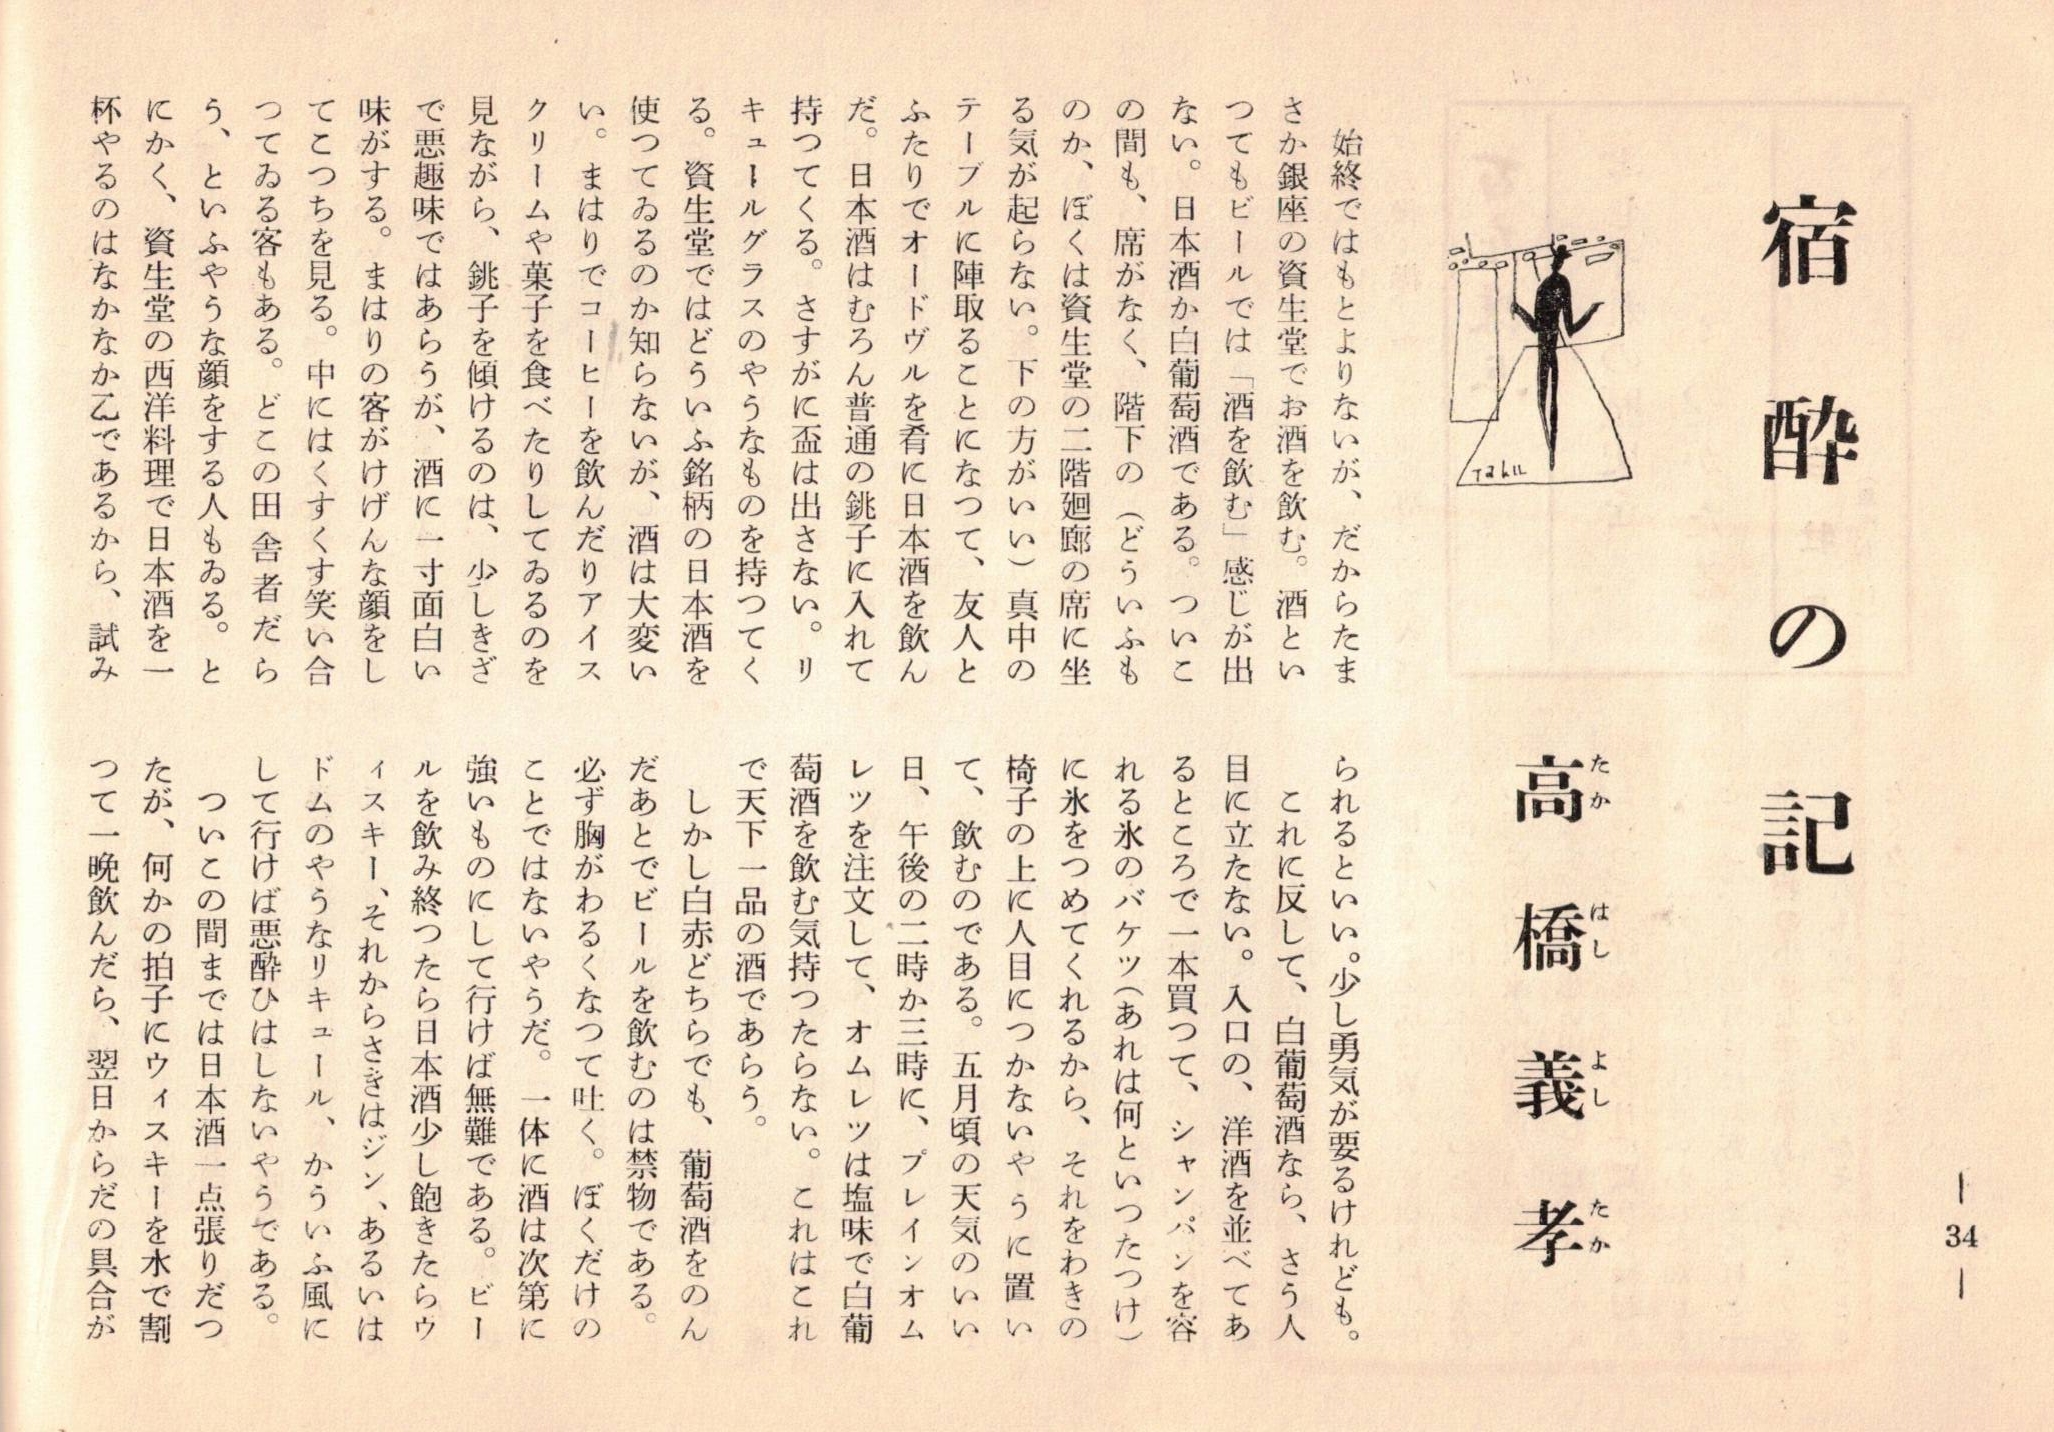 宿酔の記
高橋義孝
たか はし よし たか
Taku
始終ではもとよりないが、だからたま
さか銀座の資生堂でお酒を飲む。酒とい
つてもビールでは「酒を飲む」感じが出
ない。日本酒か白葡萄酒である。ついこ
の間も、席がなく、階下の（どういふも
のか、ぼくは資生堂の二階廻廊の席に坐
る気が起らない。下の方がいい）真中の
テーブルに陣取ることになつて、友人と
ふたりでオードヴルを肴に日本酒を飲ん
だ。日本酒はむろん普通の銚子に入れて
持つてくる。さすがに盃は出さない。リ
キュールグラスのやうなものを持つてく
る。資生堂ではどういふ銘柄の日本酒を
使つてゐるのか知らないが、酒は大変い
い。まはりでコーヒーを飲んだりアイス
クリームや菓子を食べたりしてゐるのを
見ながら、銚子を傾けるのは、少しきざ
で悪趣味ではあらうが、酒に一寸面白い
味がする。まはりの客がけげんな顔をし
てこつちを見る。中にはくすくす笑い合
つてゐる客もある。どこの田舎者だら
う、といふやうな顔をする人もゐる。と
にかく、資生堂の西洋料理で日本酒を一
杯やるのはなかなか乙であるから、試み
られるといい。少し勇気が要るけれども。
これに反して、白葡萄酒なら、さう人
目に立たない。入口の、洋酒を並べてあ
るところで一本買つて、シャンパンを容
れる氷のバケツ（あれは何といつたつけ）
に氷をつめてくれるから、それをわきの
椅子の上に人目につかないやうに置い
て、飲むのである。五月頃の天気のいい
日、午後の二時か三時に、プレインオム
レツを注文して、オムレツは塩味で白葡
萄酒を飲む気持つたらない。これはこれ
で天下一品の酒であらう。
しかし白赤どちらでも、葡萄酒をのん
だあとでビールを飲むのは禁物である。
必ず胸がわるくなつて吐く。ぼくだけの
ことではないやうだ。一体に酒は次第に
強いものにして行けば無難である。ビー
ルを飲み終つたら日本酒少し飽きたらウ
ィスキー、それからさきはジン、あるいは
ドムのやうなリキュール、かういふ風に
して行けば悪酔ひはしないやうである。
ついこの間までは日本酒一点張りだつ
たが、何かの拍子にウィスキーを水で割
つて一晩飲んだら、翌日からだの具合が
— 34 —